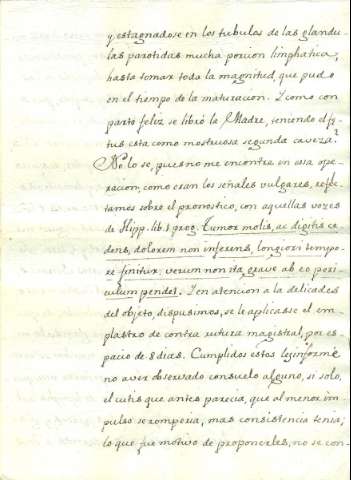 y, estagnadose en los tubulos de las glandu-
las parotidas mucha porcion limphatica,
hasta tomar toda la magnitud, que pudo
en el tiempo de la maturacion. I como con
parto feliz se libró la Madre, teniendo el fe-
tus esta como mostruosa segunda caveza?
No lo se, pues no me encontre en essa ope-
racion, como eran los señales vulgares, refle-
tamos sobre el pronostico, con aquellas vozes
de Hipp. lib. 1 prog. Tumor molis, ac digitis ce
dens, dolorem non inferens, longiori tempo-
re finitur: verum non ita grave ab eo peri-
culum pendet. I en atencion a la delicades
del objeto, dispusimos, se le applicasse el em-
plastro de contra rutura magistral, por es-
pacio de 8 dias. Cumplidos estos le informé
no aver observado consuelo alguno, si solo,
el cutis que antes parecia, que al menor im-
pulso se romperia, mas consistencia tenia;
lo que fue motivo de proponerles, no se con-